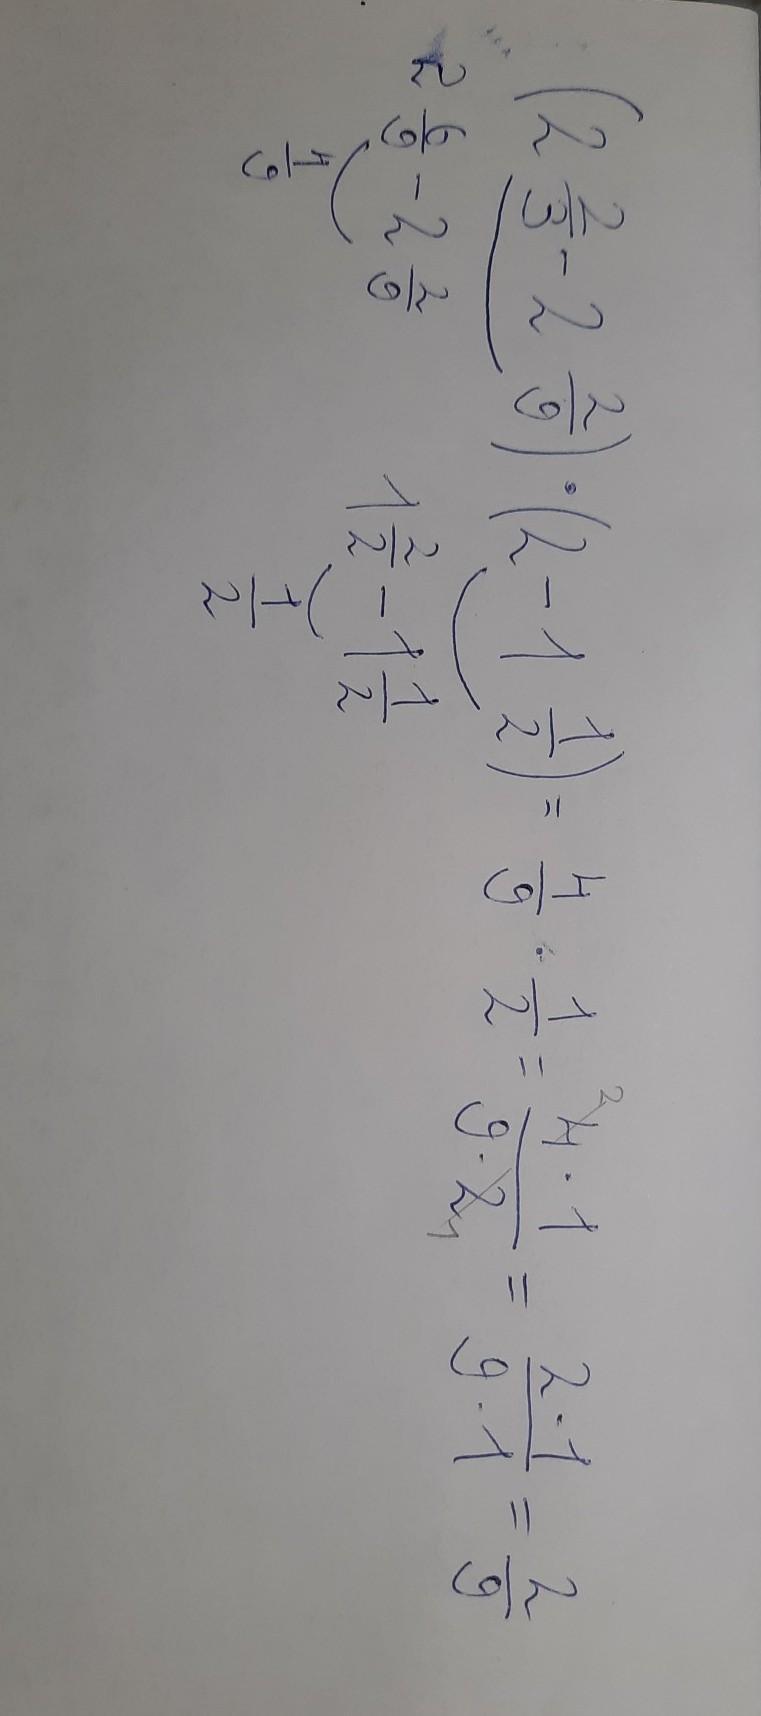 (2 2/3 - 2 2/9) · (2 - 1 1/2) = 4/9 · 1/2 = 4·1/9·2 = 2·1/9·1 = 2/9
2 6/9 - 2 2/9 1 2/2 - 1 1/2
4/9 1/2